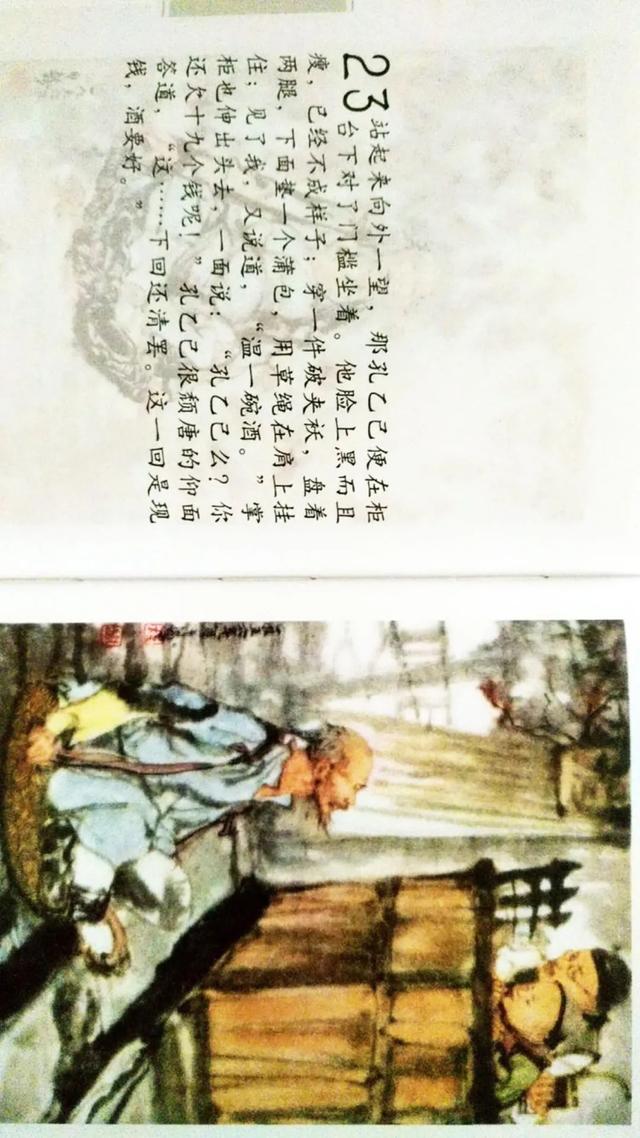 23 站起来向外一望，那孔乙己便在柜
台下对了门槛坐着。他脸上黑而且
瘦，已经不成样子；穿一件破夹袄，盘着
两腿，下面垫一个蒲包，用草绳在肩上挂
住；见了我，又说道，“温一碗酒。”掌
柜也伸出头去，一面说：“孔乙己么？你
还欠十九个钱呢！”孔乙己很颓唐的仰面
答道，“这……下回还清罢。这一回是现
钱，酒要好。”